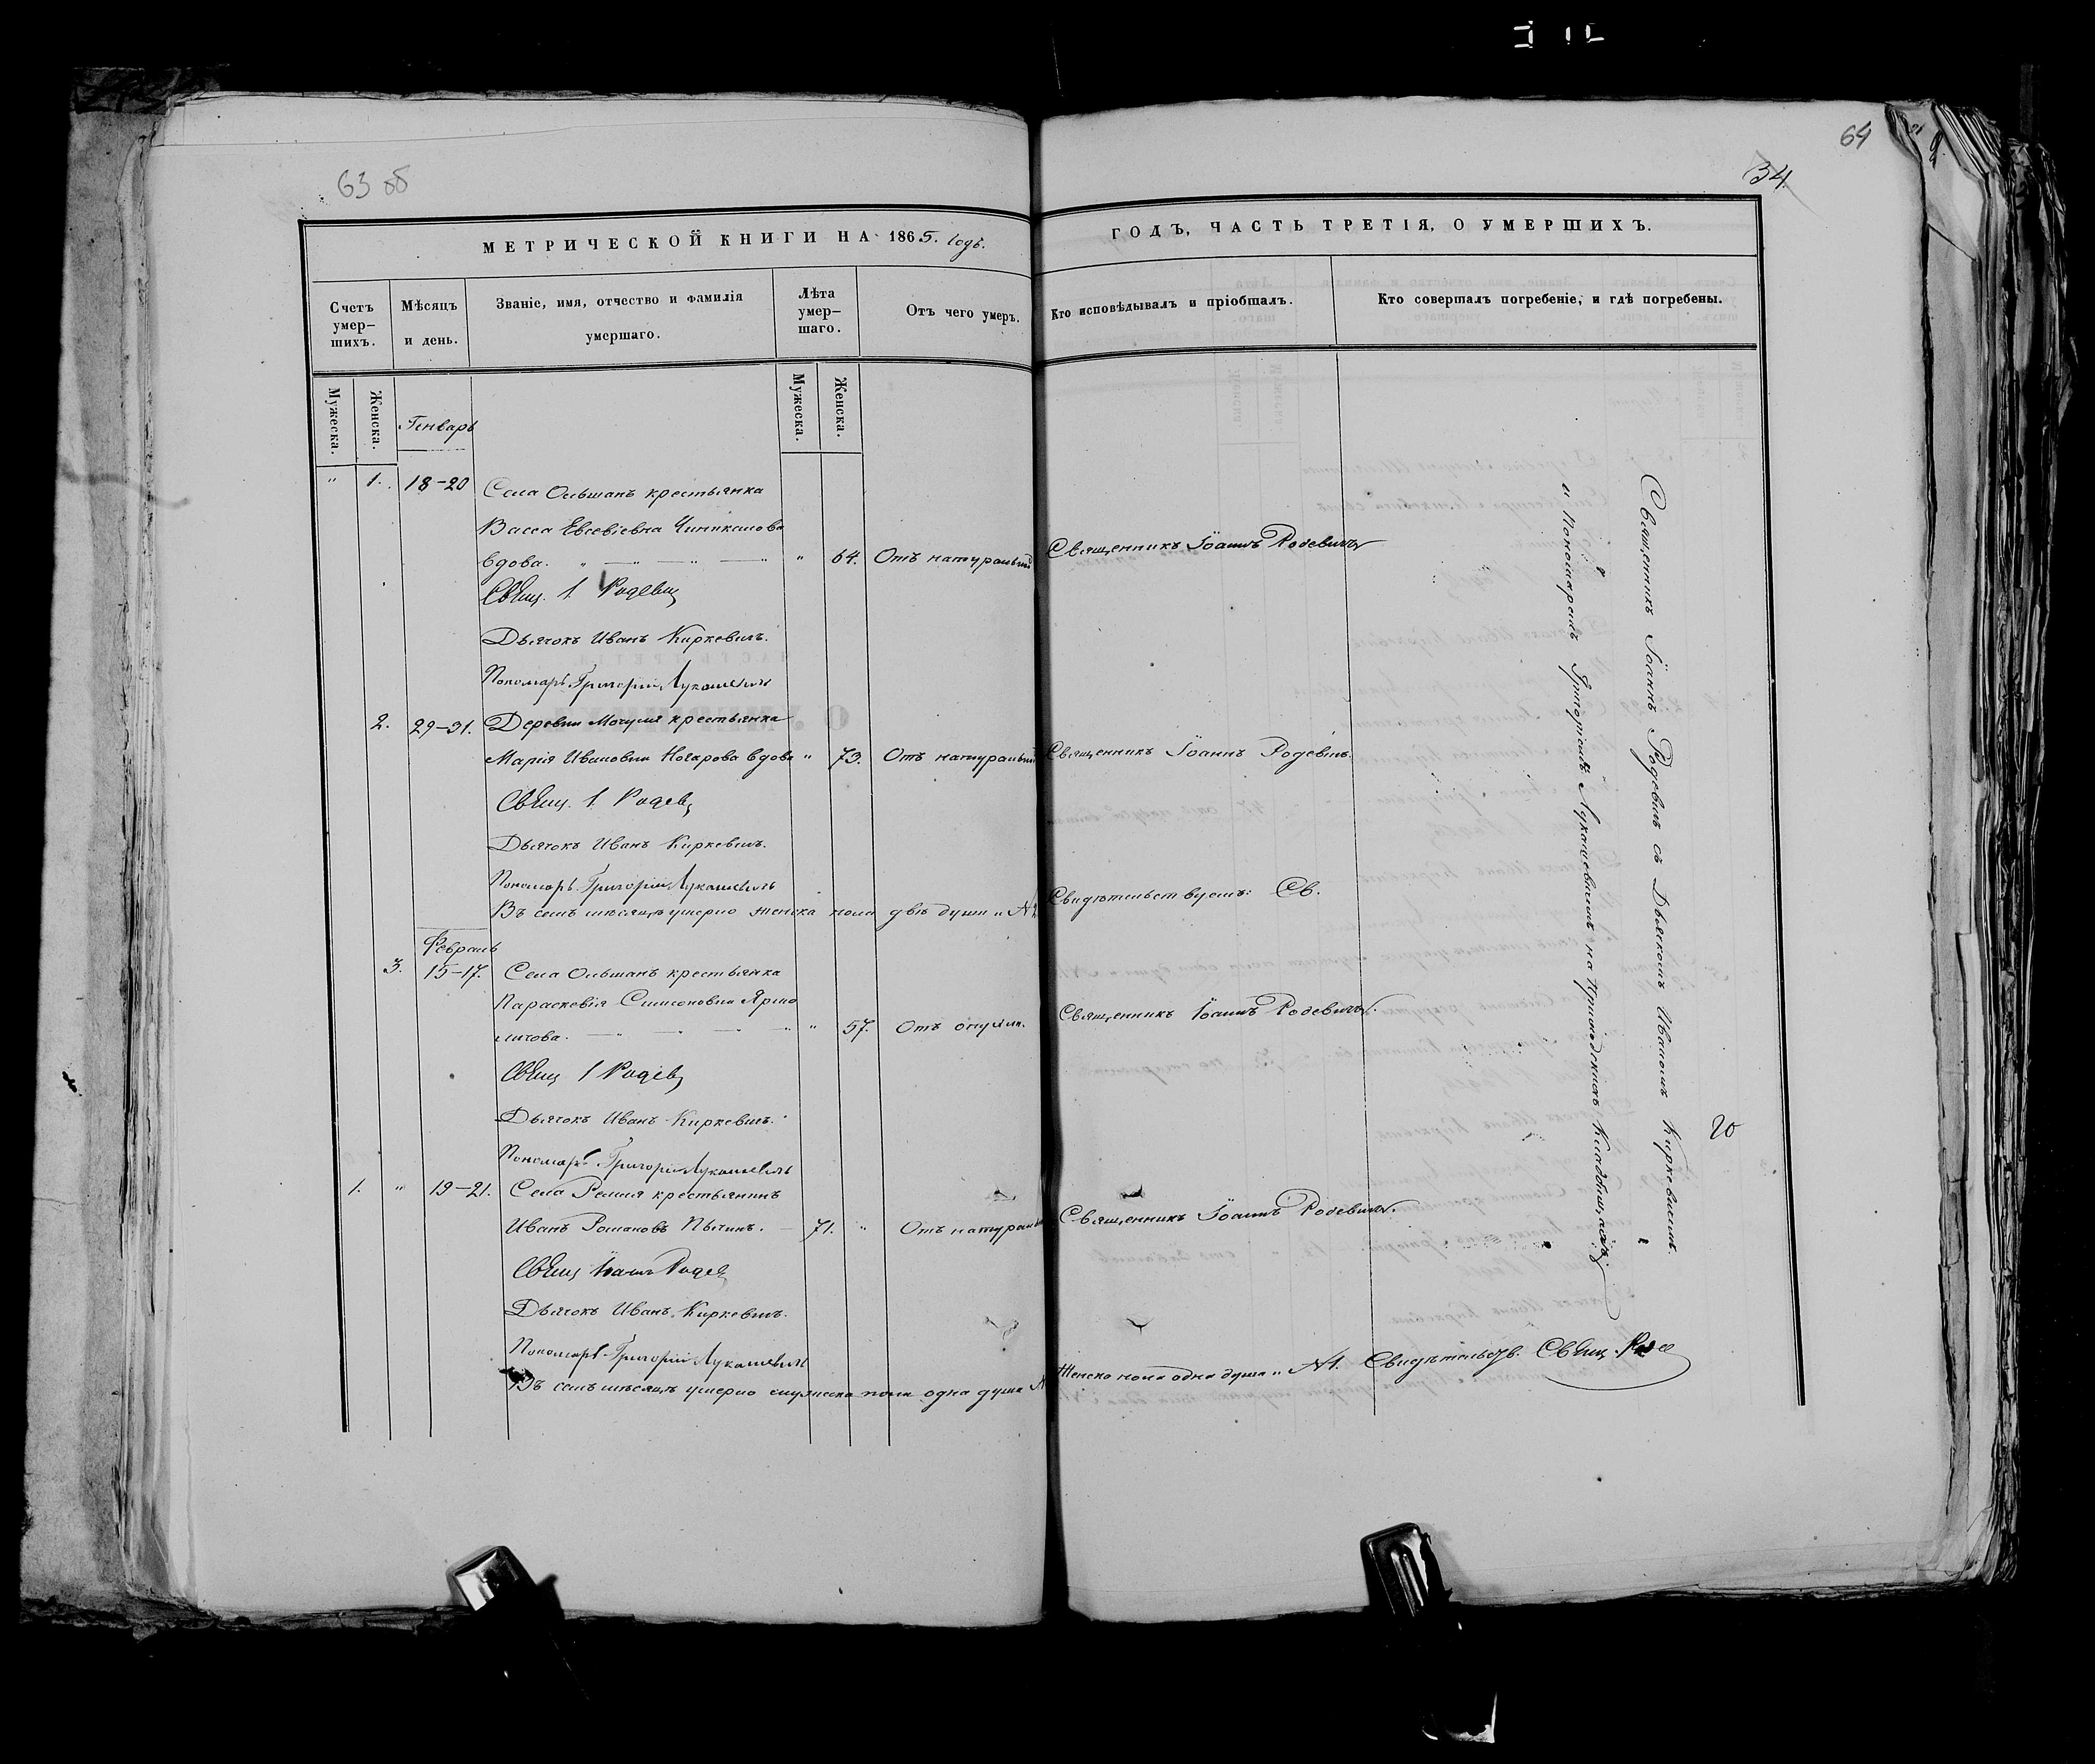 63 об
64
34
МЕТРИЧЕСКОЙ КНИГИ НА 1865. годъ.
ГОДЪ, ЧАСТЬ ТРЕТІЯ, О УМЕРШИХЪ.
Счетъ умер-шихъ.
Мѣсяцъ и день.
Званіе, имя, отчество и фамилія умершаго.
Лѣта умер-шаго.
Отъ чего умеръ.
Кто исповѣдывалъ и пріобщалъ.
Кто совершалъ погребеніе, и гдѣ погребены.
Мужеска.
Женска.
Мужеска.
Женска.
Генварь
" 1. 18-20 Села Ольшанъ крестьянка
Васса Евсевіевна
вдова. " " " 64. Отъ натуральной Священникъ Іоаннъ Родевичъ
Свящ. І. Родевич
Дьячокъ Иванъ Киркевичъ.
Пономарь Григорій Лукашевичъ
2. 29-31. Деревни крестьянка
Марія Ивановна вдова " 73. Отъ натуральной Священникъ Іоаннъ Родевичъ.
Свящ. І. Родев
Дьячокъ Иванъ Киркевичъ.
Пономарь Григорій Лукашевичъ
Въ семъ мѣсяцѣ умерло женска пола двѣ души " N 2 Свидѣтельствуемъ: Св.
Февраль
3. 15-17. Села Ольшанъ крестьянка
Параскевія Симеоновна Ярмо
личова. " " 57. Отъ опухли. Священникъ Іоаннъ Родевичъ.
Свящ І Родев
Дьячокъ Иванъ Киркевичъ.
Пономарь Григорій Лукашевичъ
1. " 19-21. Села Ремля крестьянинъ
Иванъ Романовъ Пычикъ. 71. " Отъ натураль Священникъ Іоаннъ Родевичъ.
Свящ Іоаннъ Родев
Дьячокъ Иванъ Киркевичъ.
Пономарь Григорій Лукашевичъ
Въ семъ мѣсяцѣ умерло мужеска пола одна душа N Женска пола одна душа " N 1. Свидѣтельств. Свящ. Родев
Священникъ Іоаннъ Родевичъ съ Дьячкомъ Иваномъ Киркевичемъ
и Пономаремъ Григоріемъ Лукашевичемъ на Приходскомъ Кладбищѣ
20